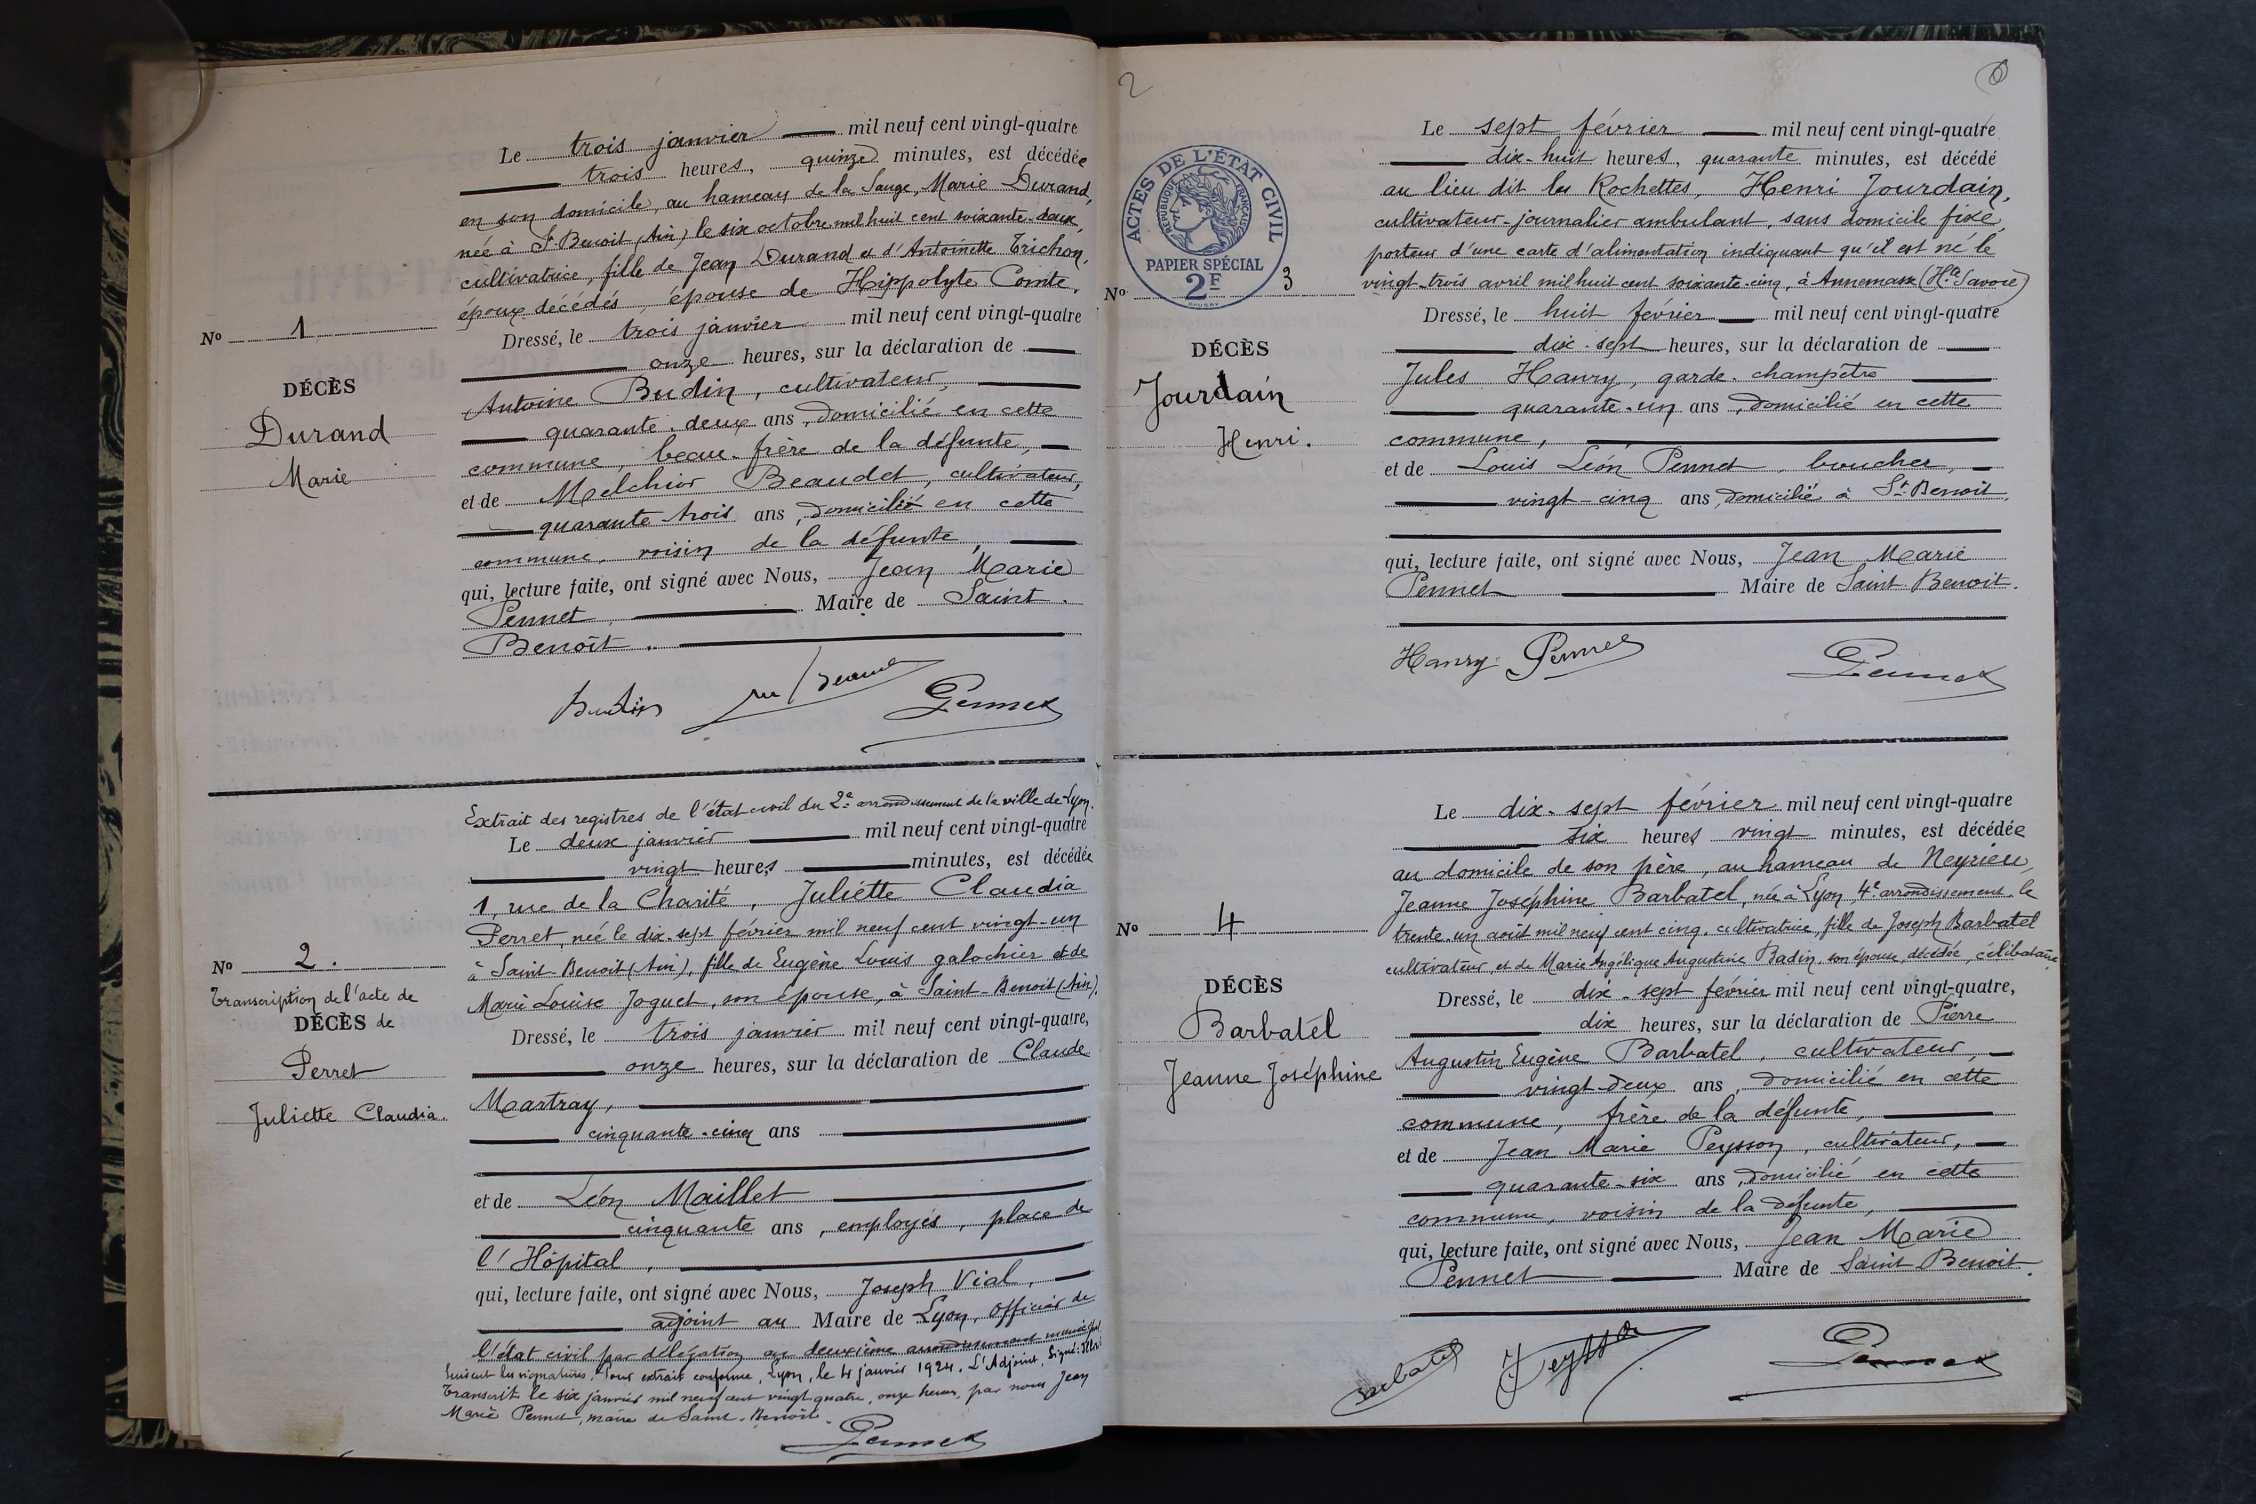 Le trois janvier mil neuf cent vingt-quatre
trois heures, quinze minutes, est décédée
en son domicile, au hameau de la Sauge, Marie Durand,
née à St Benoit (Ain) le six octobre mil huit cent soixante-deux,
cultivatrice, fille de Jean Durand et d'Antoinette Trichon,
époux décédés, épouse de Hippolyte Comte.
No 1
Dressé, le trois janvier mil neuf cent vingt-quatre
onze heures, sur la déclaration de
DÉCÈS
Durand
Marie
Antoine Budin, cultivateur,
quarante-deux ans, domicilié en cette
commune, beau-frère de la défunte,
et de Melchior Beaudet, cultivateur,
quarante trois ans, domicilié en cette
commune, voisin de la défunte,
qui, lecture faite, ont signé avec Nous, Jean Marie
Pennet, Maire de Saint-
Benoît.
Budin Pennet
Extrait des registres de l'état civil du 2e arrondissement de la ville de Lyon.
Le deux janvier mil neuf cent vingt-quatre
vingt heures minutes, est décédée
1, rue de la Charité, Juliette Claudia
Perret, née le dix-sept février mil neuf cent vingt-un
à Saint-Benoit (Ain), fille de Eugène Louis galochier et de
Marie Louise Joguet, son épouse, à Saint-Benoit (Ain).
No 2.
Transcription de l'acte de
DÉCÈS de
Perret
Juliette Claudia.
Dressé, le trois janvier mil neuf cent vingt-quatre,
onze heures, sur la déclaration de Claude
Martray,
cinquante-cinq ans
et de Léon Maillet
cinquante ans, employés, place de
l'Hôpital,
qui, lecture faite, ont signé avec Nous, Joseph Vial,
adjoint au Maire de Lyon, officier de
l'état civil par délégation au deuxième arrondissement municipal
Suivent les signatures. Pour extrait conforme, Lyon, le 4 janvier 1924. L'Adjoint, Signé:
Transcrit le six janvier mil neuf cent vingt quatre, onze heures, par nous Jean
Marie Pennet, maire de Saint-Benoit.
Pennet
2
Le sept février mil neuf cent vingt-quatre
dix-huit heures, quarante minutes, est décédé
au lieu dit les Rochettes, Henri Jourdain,
cultivateur-journalier ambulant, sans domicile fixe,
porteur d'une carte d'alimentation indiquant qu'il est né le
vingt-trois avril mil huit cent soixante-cinq, à Annemasse (Hte Savoie)
ACTES DE L'ÉTAT CIVIL
RÉPUBLIQUE FRANÇAISE
PAPIER SPÉCIAL
2F
No 3
DÉCÈS
Jourdain
Henri.
Dressé, le huit février mil neuf cent vingt-quatre
dix-sept heures, sur la déclaration de
Jules Hanry, garde-champêtre
quarante-un ans, domicilié en cette
commune,
et de Louis Léon Pennet, boucher,
vingt-cinq ans, domicilié à St Benoit,
qui, lecture faite, ont signé avec Nous, Jean Marie
Pennet Maire de Saint Benoit.
Hanry Pennet Pennet
Le dix-sept février mil neuf cent vingt-quatre
six heures vingt minutes, est décédée
au domicile de son père, au hameau de Neyrieu,
Jeanne Joséphine Barbatel, née à Lyon, 4e arrondissement, le
trente-un août mil neuf cent cinq, cultivatrice, fille de Joseph Barbatel
cultivateur, et de Marie Angélique Augustine Badin, son épouse, décédée, célibataire
No 4
DÉCÈS
Barbatel
Jeanne Joséphine
Dressé, le dix-sept février mil neuf cent vingt-quatre,
dix heures, sur la déclaration de Pierre
Augustin Eugène Barbatel, cultivateur,
vingt-deux ans, domicilié en cette
commune, frère de la défunte,
et de Jean Marie Peysson, cultivateur,
quarante-six ans, domicilié en cette
commune, voisin de la défunte,
qui, lecture faite, ont signé avec Nous, Jean Marie
Pennet Maire de Saint Benoit.
Barbatel Peysson Pennet